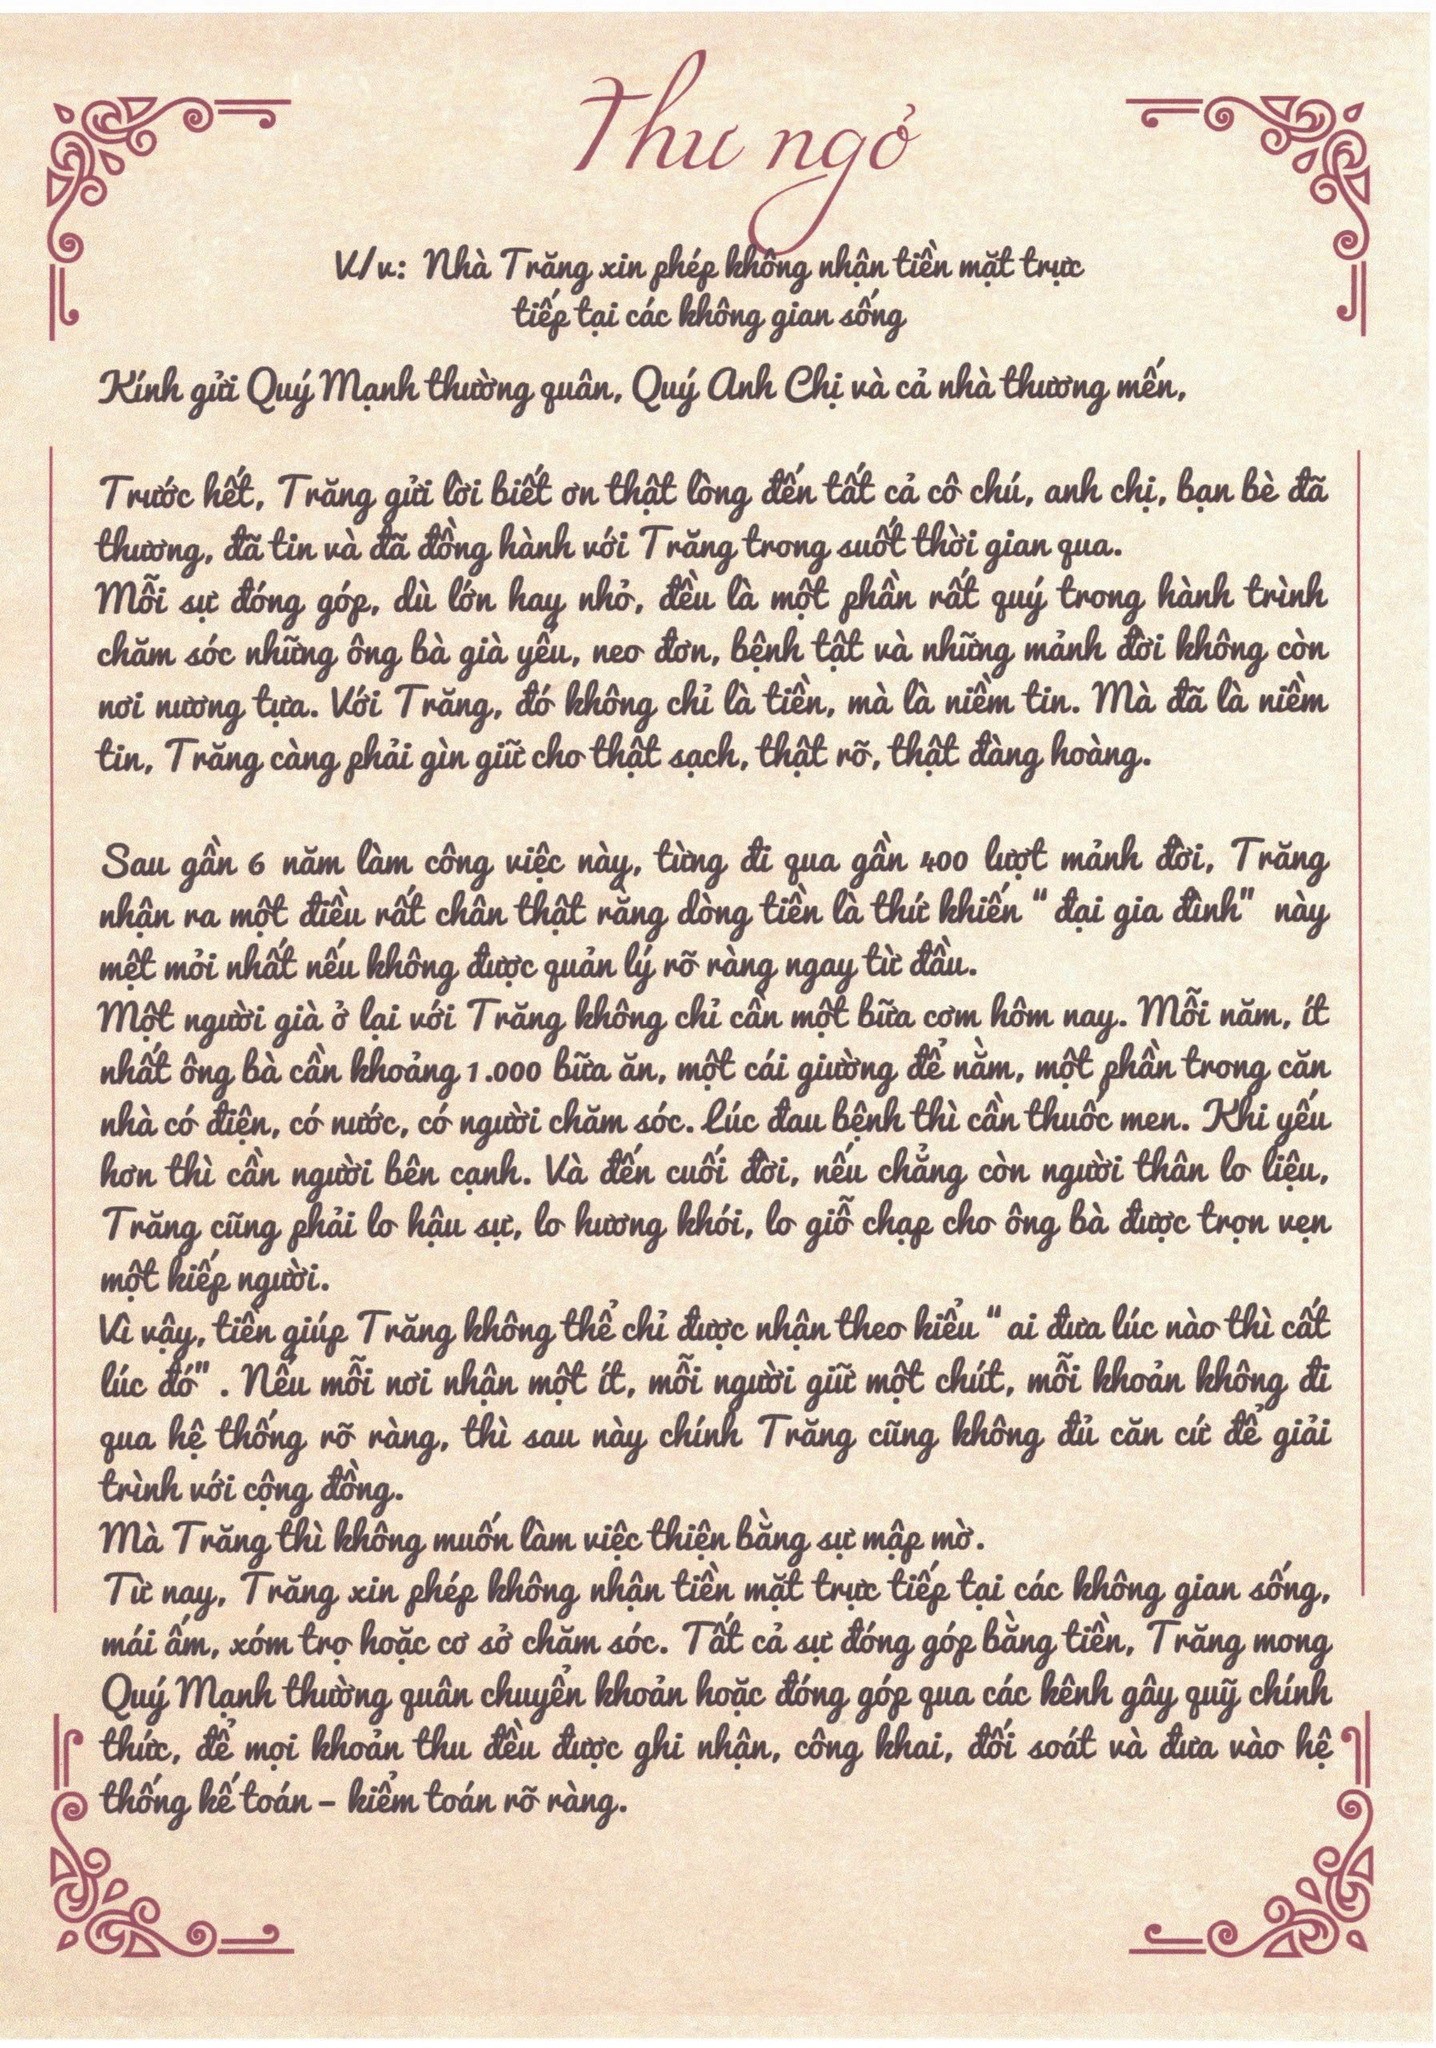 Thư ngỏ
V/v: Nhà Trăng xin phép không nhận tiền mặt trực
tiếp tại các không gian sống
Kính gửi Quý Mạnh thường quân, Quý Anh Chị và cả nhà thương mến,
Trước hết, Trăng gửi lời biết ơn thật lòng đến tất cả cô chú, anh chị, bạn bè đã
thương, đã tin và đã đồng hành với Trăng trong suốt thời gian qua.
Mỗi sự đóng góp, dù lớn hay nhỏ, đều là một phần rất quý trong hành trình
chăm sóc những ông bà già yếu, neo đơn, bệnh tật và những mảnh đời không còn
nơi nương tựa. Với Trăng, đó không chỉ là tiền, mà là niềm tin. Mà đã là niềm
tin, Trăng càng phải gìn giữ cho thật sạch, thật rõ, thật đàng hoàng.
Sau gần 6 năm làm công việc này, từng đi qua gần 400 lượt mảnh đời, Trăng
nhận ra một điều rất chân thật rằng dòng tiền là thứ khiến “ đại gia đình” này
mệt mỏi nhất nếu không được quản lý rõ ràng ngay từ đầu.
Một người già ở lại với Trăng không chỉ cần một bữa cơm hôm nay. Mỗi năm, ít
nhất ông bà cần khoảng 1.000 bữa ăn, một cái giường để nằm, một phần trong căn
nhà có điện, có nước, có người chăm sóc. Lúc đau bệnh thì cần thuốc men. Khi yếu
hơn thì cần người bên cạnh. Và đến cuối đời, nếu chẳng còn người thân lo liệu,
Trăng cũng phải lo hậu sự, lo hương khói, lo giỗ chạp cho ông bà được trọn vẹn
một kiếp người.
Vì vậy, tiền giúp Trăng không thể chỉ được nhận theo kiểu “ ai đưa lúc nào thì cất
lúc đó” . Nếu mỗi nơi nhận một ít, mỗi người giữ một chút, mỗi khoản không đi
qua hệ thống rõ ràng, thì sau này chính Trăng cũng không đủ căn cứ để giải
trình với cộng đồng.
Mà Trăng thì không muốn làm việc thiện bằng sự mập mờ.
Từ nay, Trăng xin phép không nhận tiền mặt trực tiếp tại các không gian sống,
mái ấm, xóm trọ hoặc cơ sở chăm sóc. Tất cả sự đóng góp bằng tiền, Trăng mong
Quý Mạnh thường quân chuyển khoản hoặc đóng góp qua các kênh gây quỹ chính
thức, để mọi khoản thu đều được ghi nhận, công khai, đối soát và đưa vào hệ
thống kế toán – kiểm toán rõ ràng.